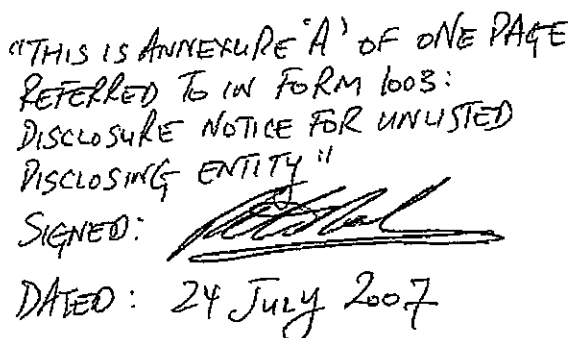 "THIS IS ANNEXURE 'A' OF ONE PAGE
REFERRED TO IN FORM 1003:
DISCLOSURE NOTICE FOR UNLISTED
DISCLOSING ENTITY"
SIGNED:
DATED: 24 JULY 2007